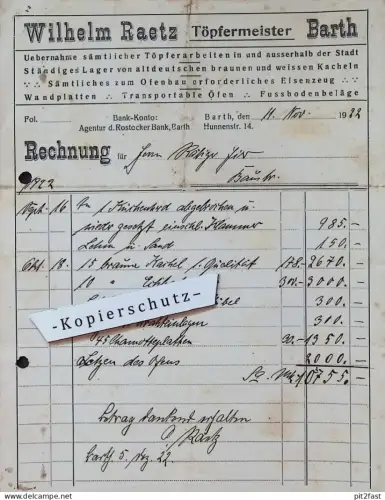 Wilhelm Raetz Töpfermeister Barth
Uebernahme sämtlicher Töpferarbeiten in und ausserhalb der Stadt
Ständiges Lager von altdeutschen braunen und weissen Kacheln
Sämtliches zum Ofenbau erforderliches Eisenzeug
Wandplatten Transportable Öfen Fussbodenbeläge
Bank-Konto: Barth, den 11. Nov. 1922
Agentur d. Rostocker Bank, Barth Hunnenstr. 14.
Rechnung für Herrn
1922
Sept. 16 1 Küchenherd abgebrochen u.
gesetzt einschl. Klammer 985.-
Lehm u. Sand 150.-
Okt. 18. 15 braune Kachel 1. Qualität 178.- 2670.-
10 " 300.- 3000.-
300.-
-Kopierschutz-
300.-
45 Chamotteplatten 30.- 1350.-
Setzen des Ofens 2000.-
10755.-
Betrag dankend erhalten
W. Raetz
Barth 5. Dez. 22.
Hosted on www.delcampe.net
pit2fast